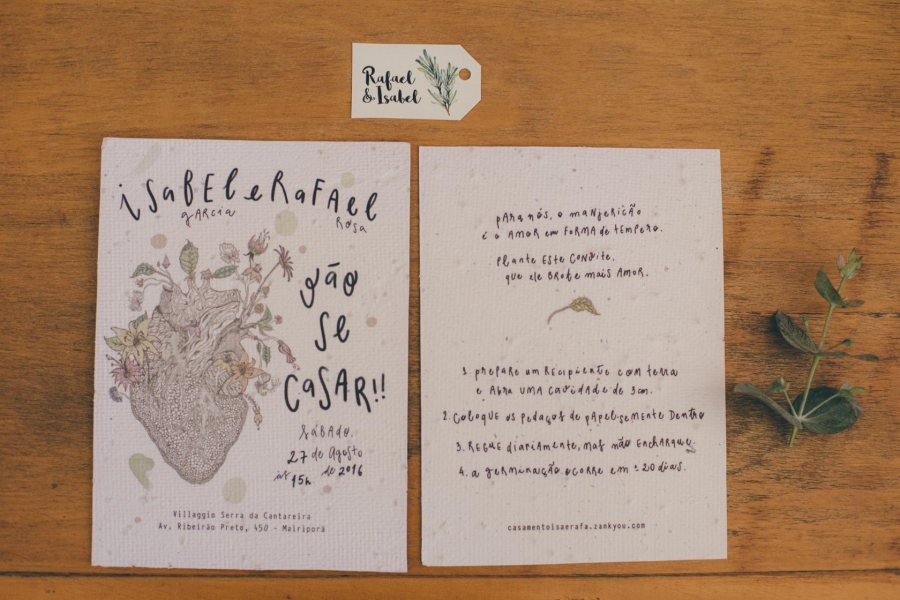 Rafael
& Isabel
isabel e Rafael
garcia
Rosa
vão
se
casar!!
sábado,
27 de Agosto
de 2016
às 15h
Villaggio Serra da Cantareira
Av. Ribeirão Preto, 450 - Mairiporã
para nós, o manjericão
é o amor em forma de tempero.
Plante este convite,
que ele brote mais amor.
1. prepare um recipiente com terra
e abra uma cavidade de 3cm.
2. Coloque os pedaços de papel-semente dentro
3. Regue diariamente, mas não encharque.
4. a germinação ocorre em ± 20 dias.
casamentoisaerafa.zankyou.com